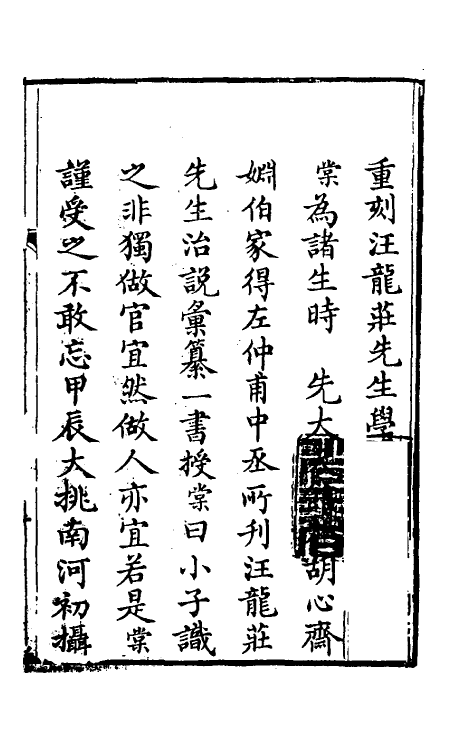 重刻汪龍莊先生學
棠為諸生時　先大胡心齋
姻伯家得左仲甫中丞所刋汪龍莊
先生治説彙纂一書授棠曰小子識
之非獨做官宜然做人亦宜若是棠
謹受之不敢忘甲辰大挑南河初攝